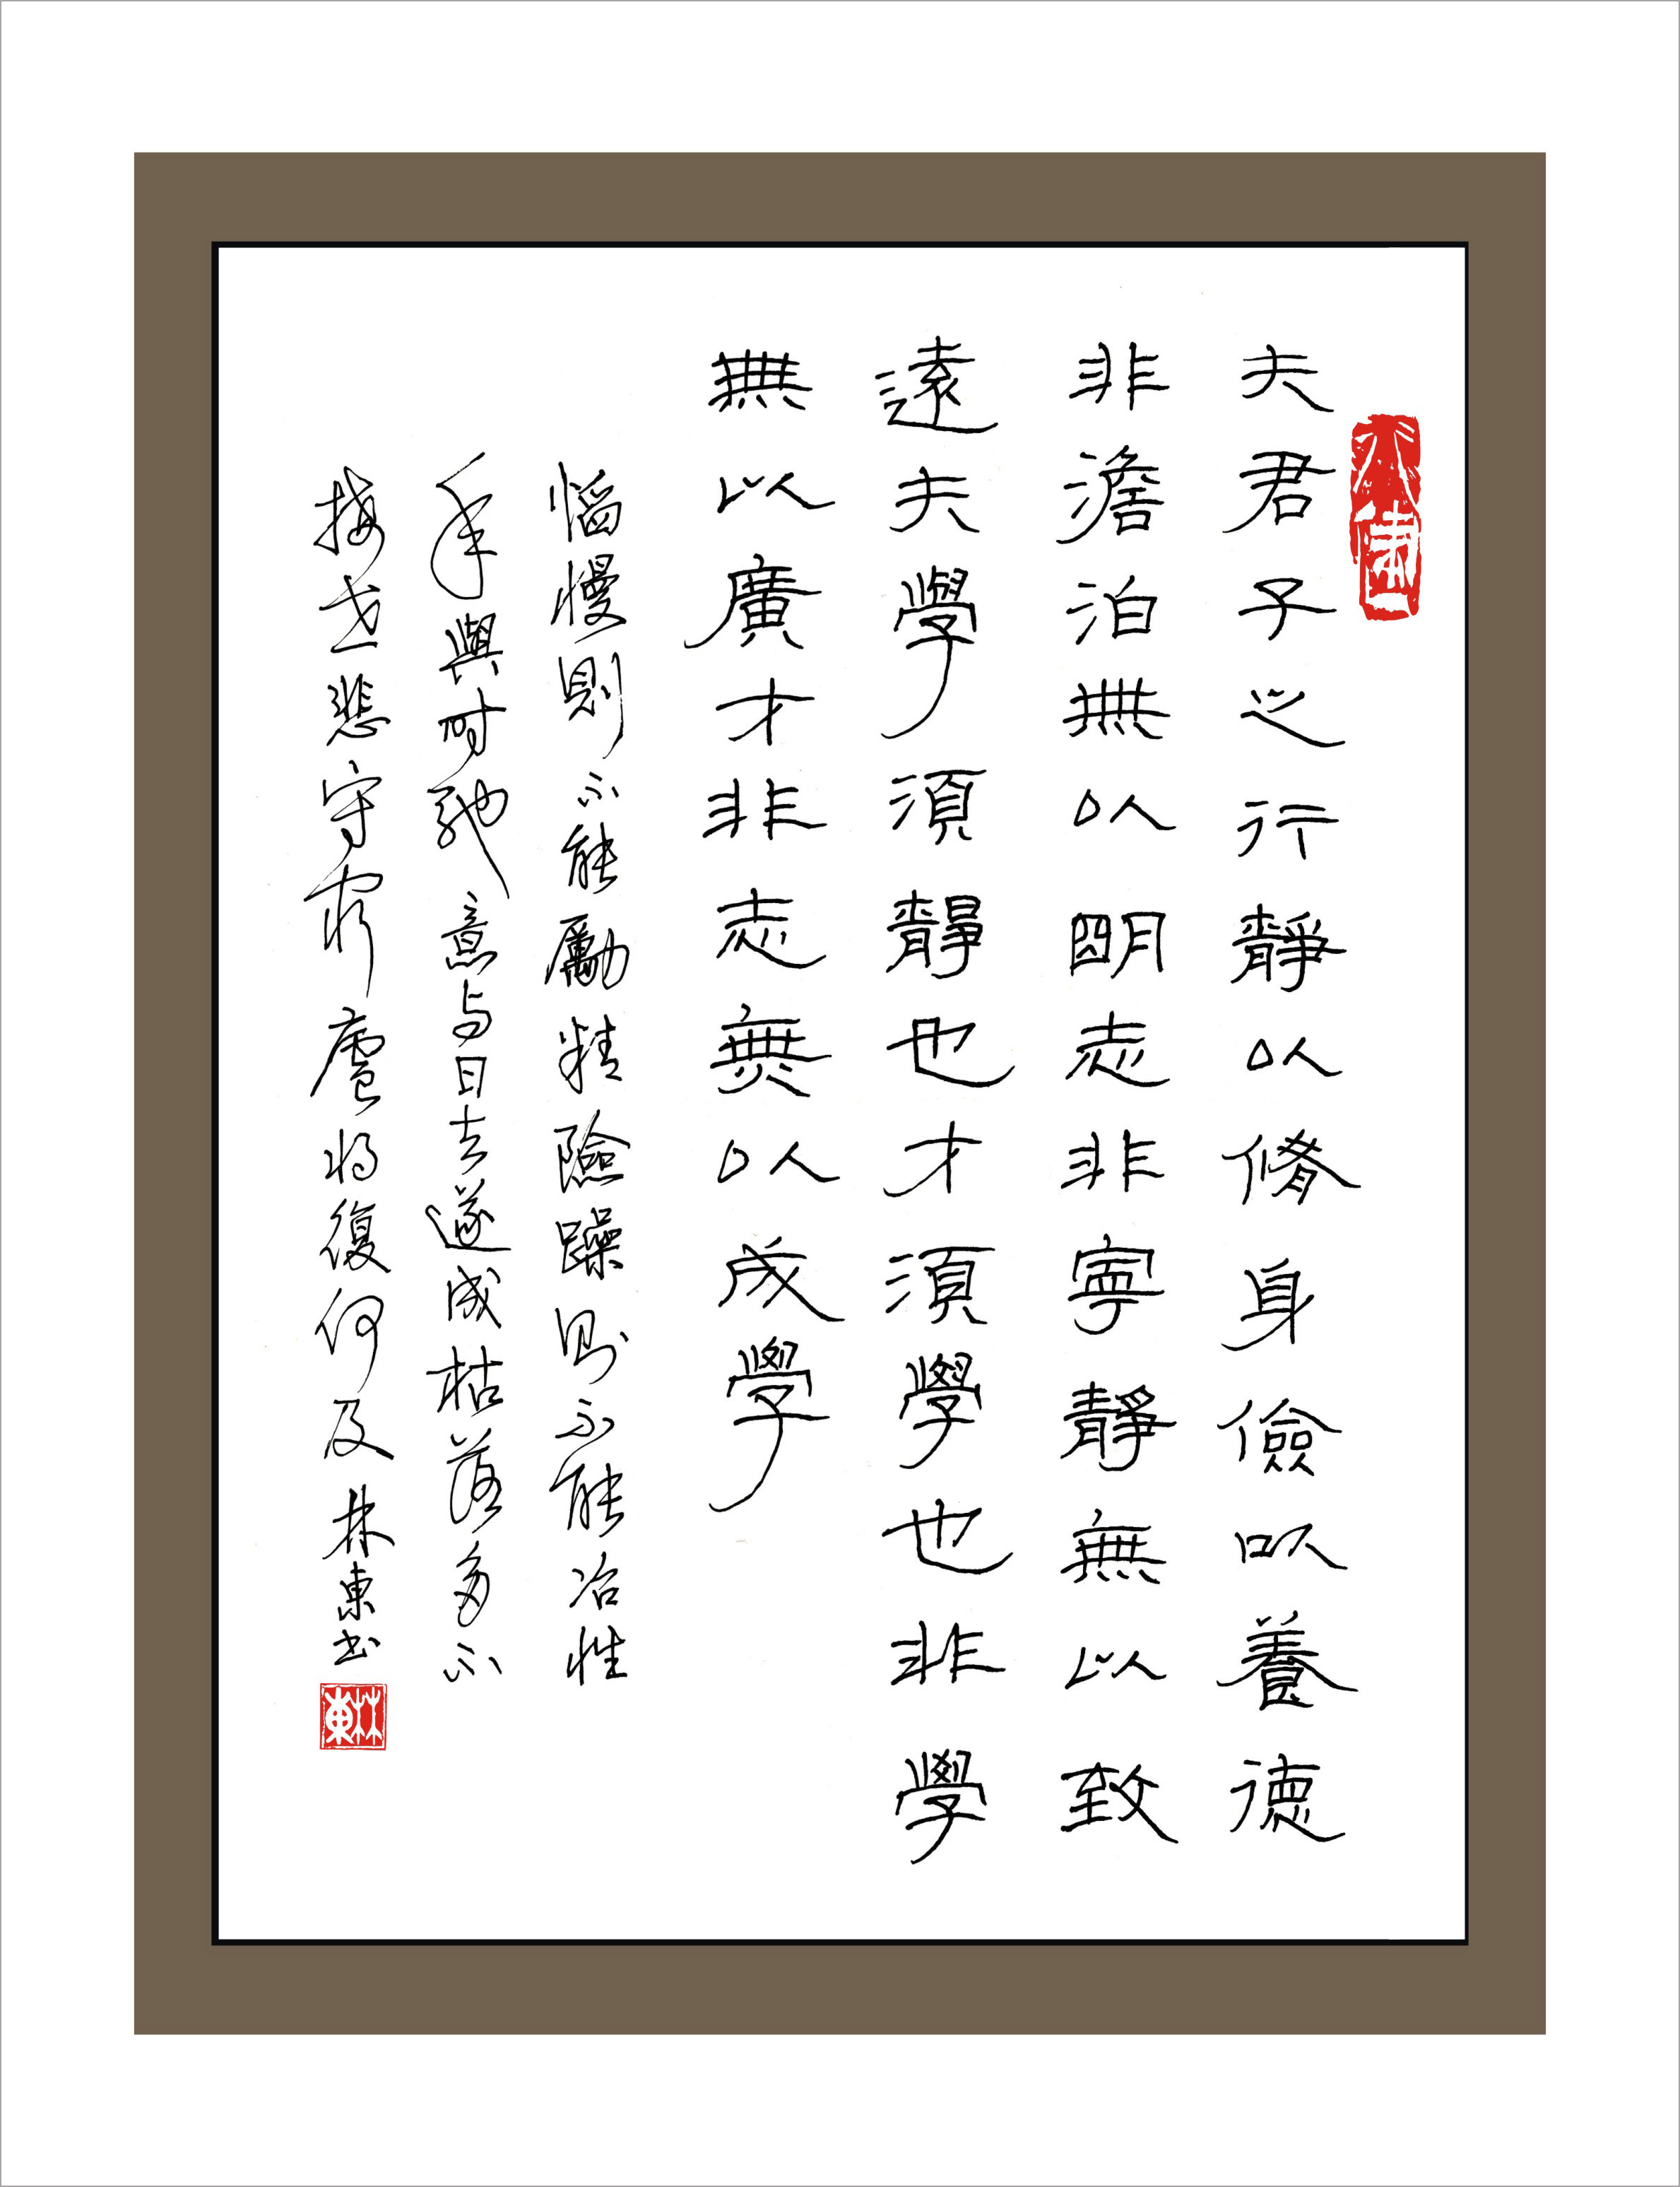 夫君子之行靜以脩身儉以養德
非澹泊無以明志非寧靜無以致
遠夫學須靜也才須學也非學
無以廣才非志無以成學
慆慢則不能勵精險躁則不能冶性
年與时馳意与日去遂成枯落多不
接世悲守窮廬将復何及林東书
林東